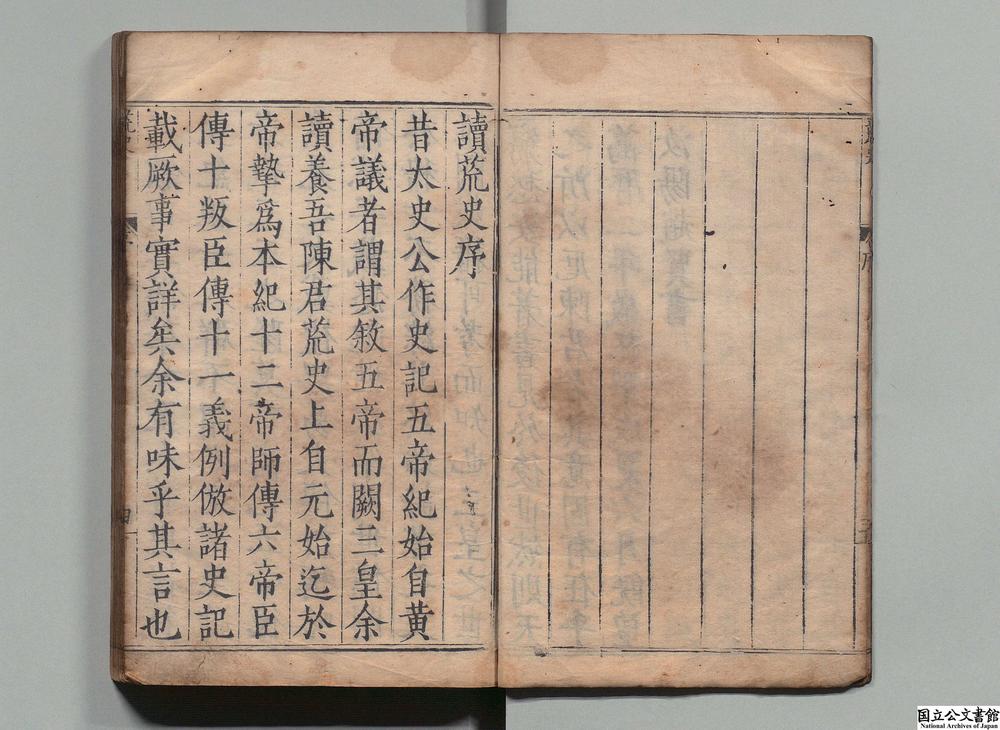 讀荒史序
昔太史公作史記五帝紀始自黃
帝議者謂其敘五帝而闕三皇余
讀養吾陳君荒史上自元始迄於
帝摯爲本紀十二帝師傳六帝臣
傳十叛臣傳十一義例倣諸史記
載厥事實詳矣余有味乎其言也
国立公文書館
National Archives of Japan